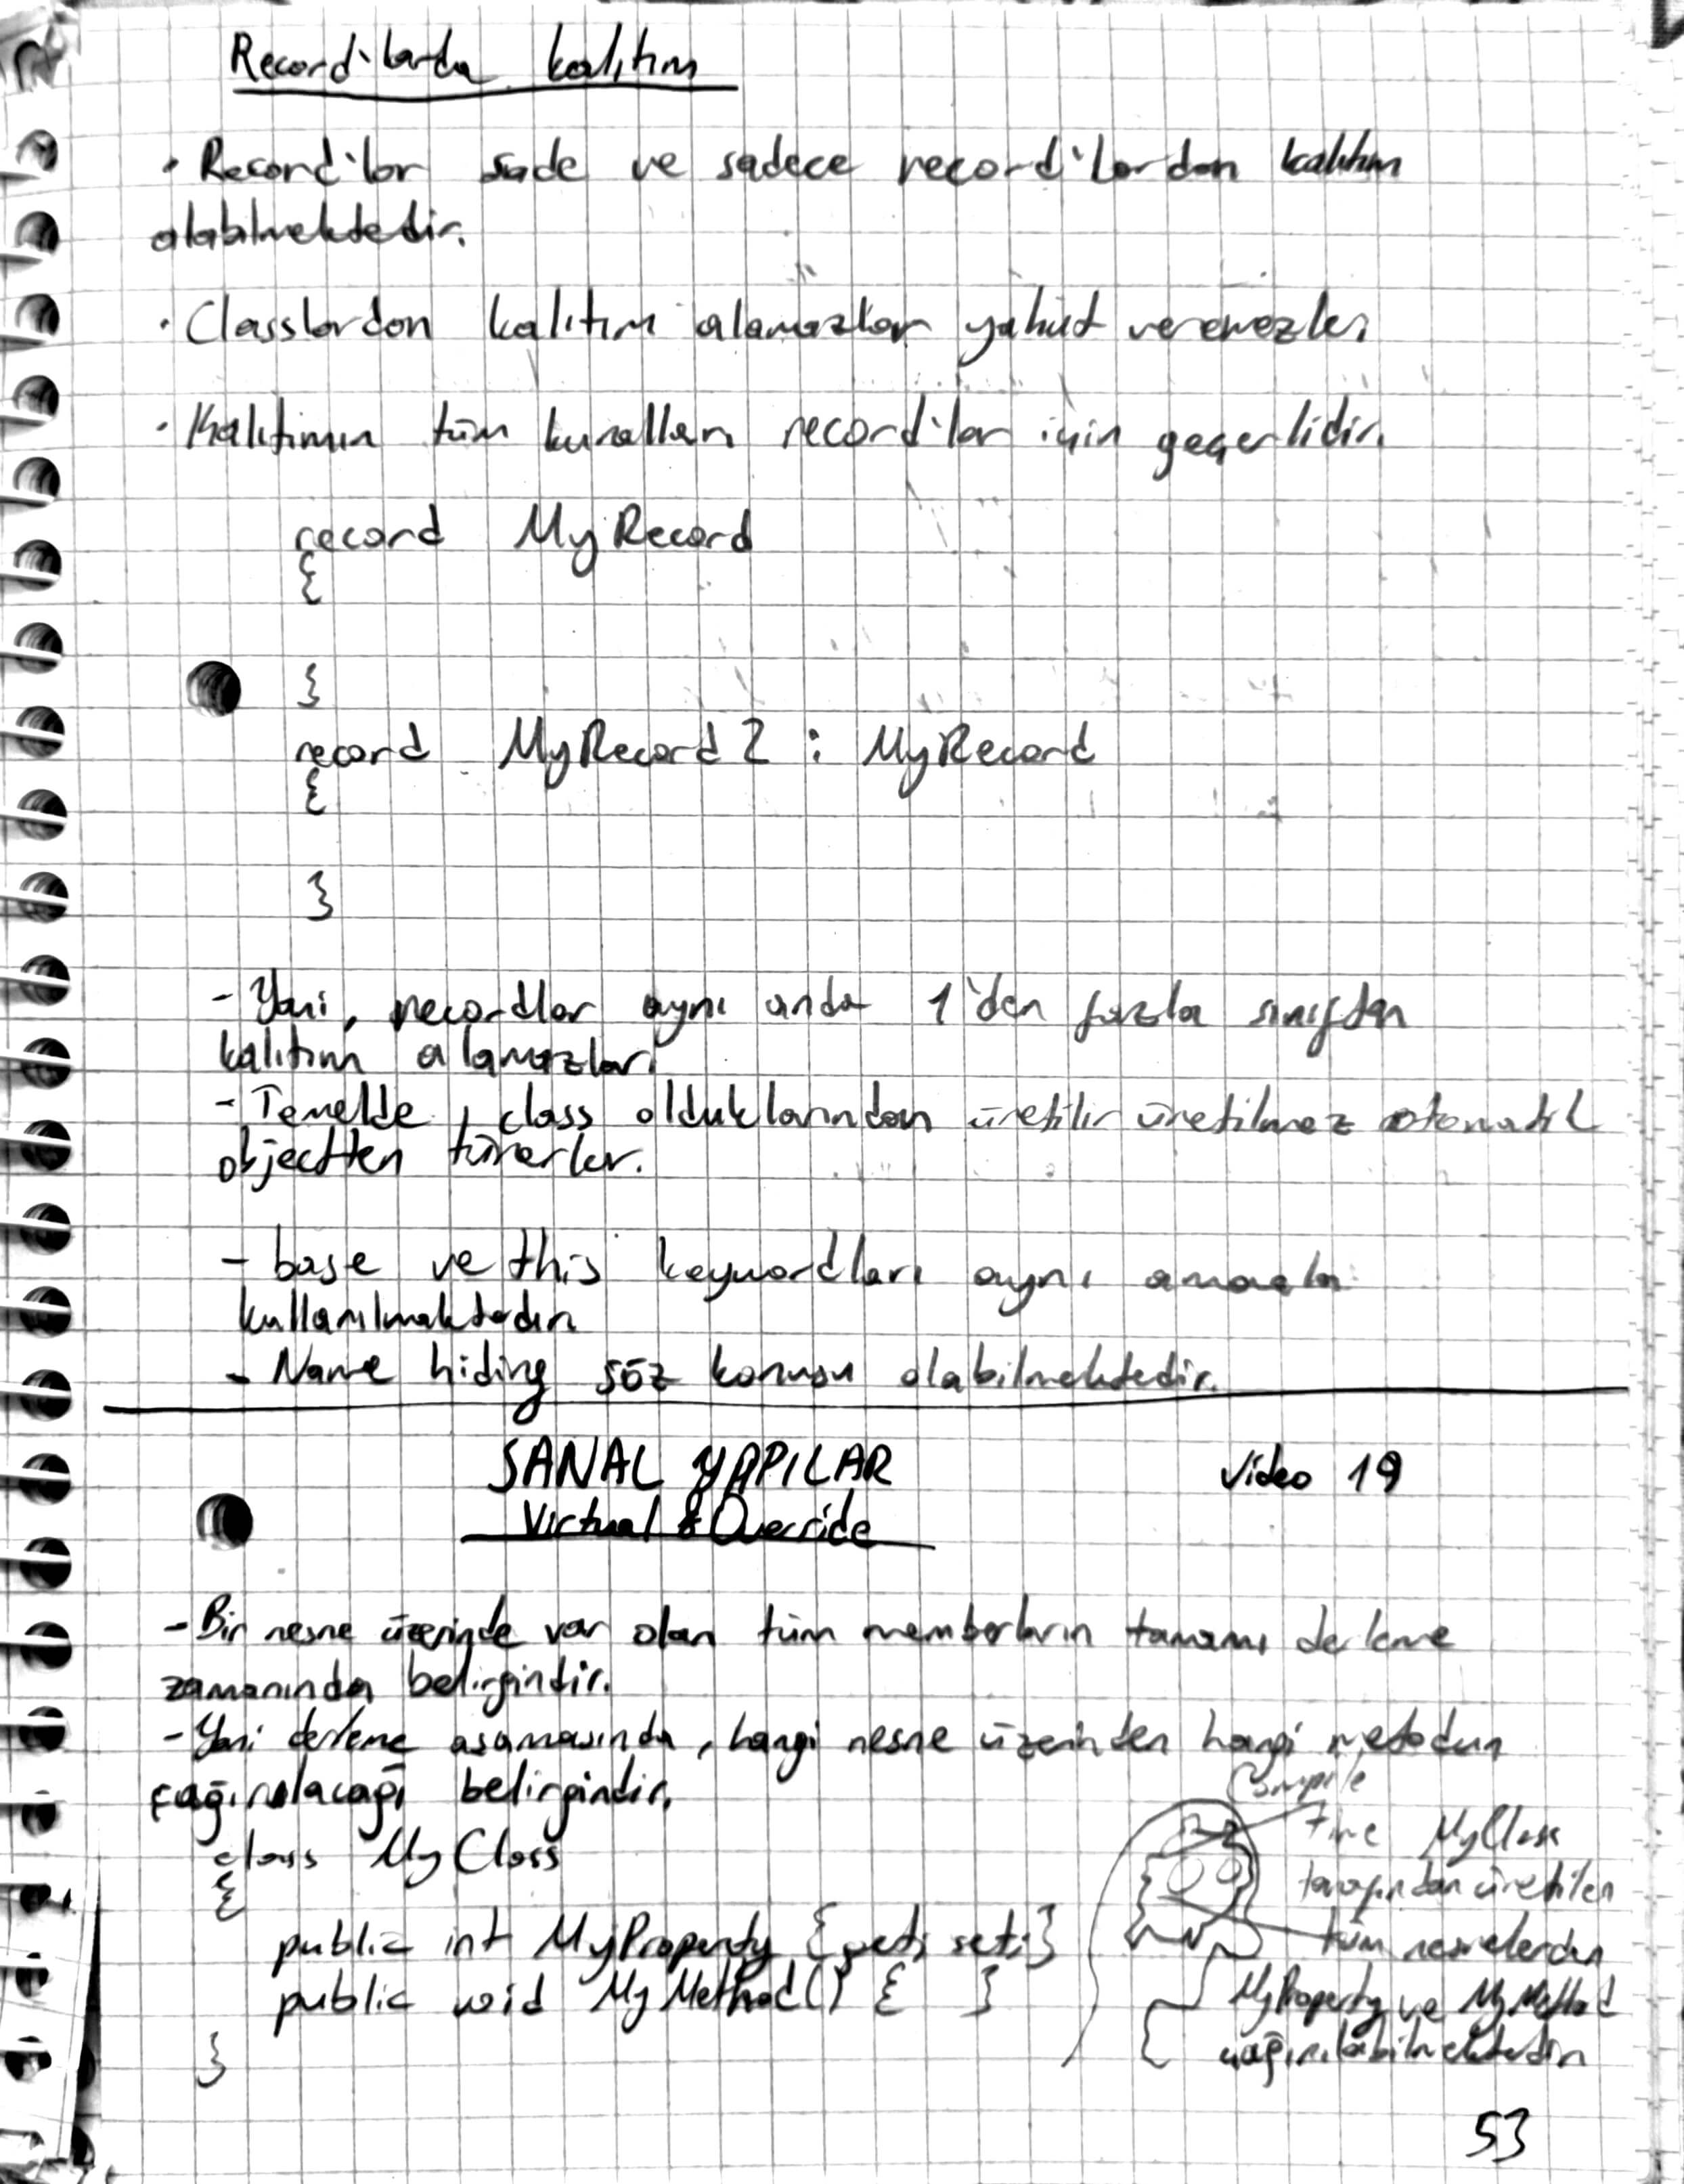 Record'larda kalıtım
• Record'lar sade ve sadece record'lardan kalıtım
alabilmektedir.
• Classlardan kalıtım alamazlar yahut veremezler
• Kalıtımın tüm kuralları record'lar için geçerlidir.
record MyRecord
{
}
record MyRecord2 : MyRecord
{
}
- Yani, recordlar aynı anda 1'den fazla sınıftan
kalıtım alamazlar.
- Temelde, class olduklarından üretilir üretilmez otomatik
objectten türerler.
- base ve this keywordları aynı amaçla
kullanılmaktadır
- Name hiding söz konusu olabilmektedir.
SANAL YAPILAR Video 19
Virtual & Override
- Bir nesne üzerinde var olan tüm memberların tamamı derleme
zamanında belirgindir.
- Yani derleme aşamasında, hangi nesne üzerinden hangi metodun
çağırılacağı belirgindir.
class MyClass
{
public int MyProperty { get; set; }
public void MyMethod() { }
}
Compile
Time MyClass
tarafından üretilen
tüm nesnelerden
MyProperty ve MyMethod
çağırılabilmektedir
53